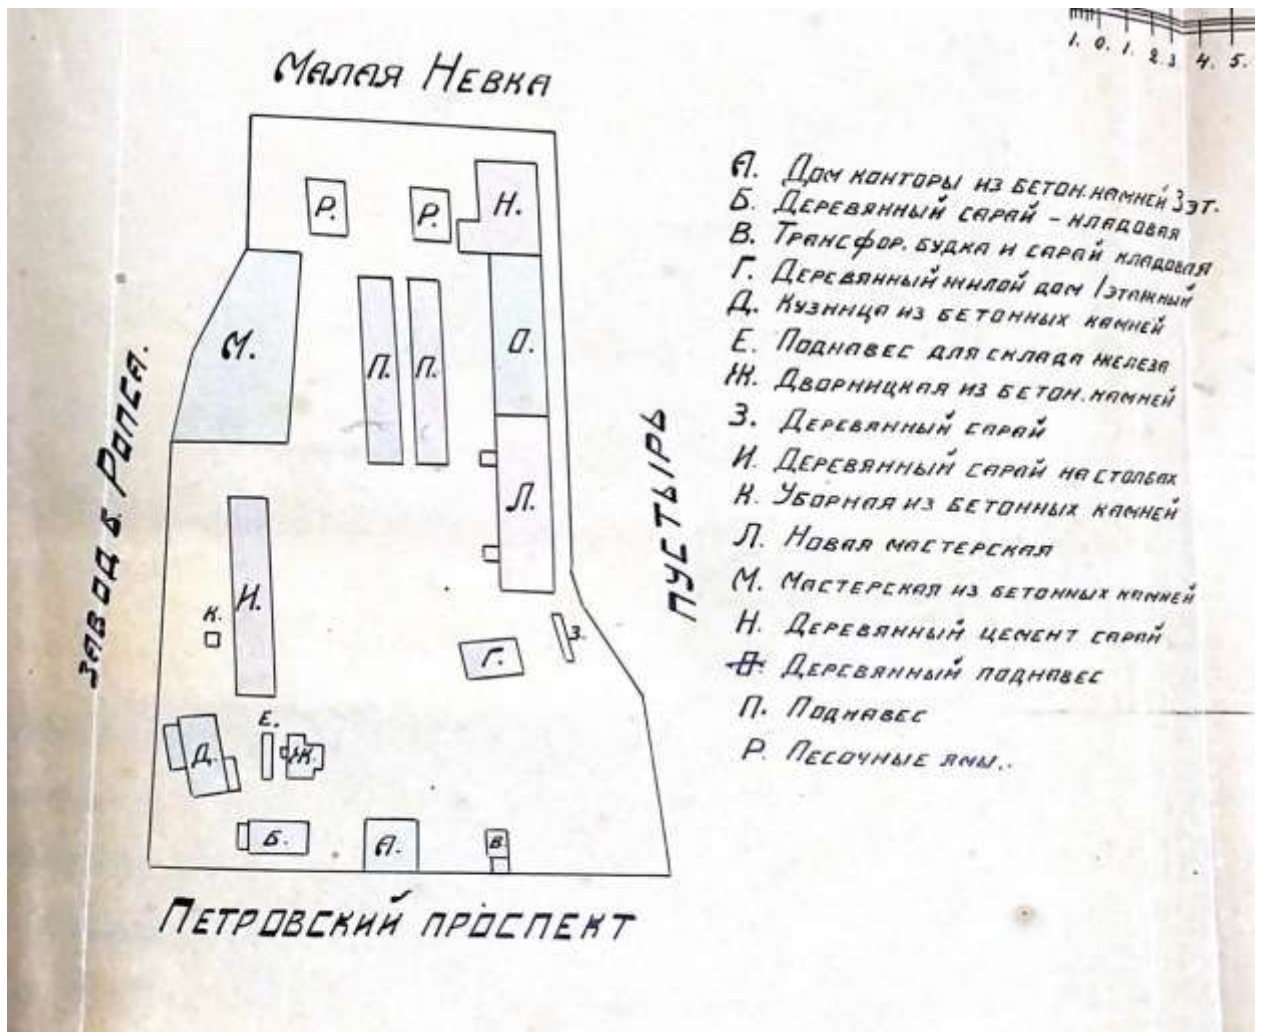 1. 0. 1. 2. 3 4. 5.
Малая Невка
Завод б. Ропса.
Пустырь
Р.
Р.
Н.
М.
П.
П.
О.
Л.
И.
К.
Г.
З.
Е.
Д.
Ж.
Б.
А.
В.
Петровский проспект
А. Дом конторы из бетон. камней 3 эт.
Б. Деревянный сарай - кладовая
В. Трансфор. будка и сарай кладовая
Г. Деревянный жилой дом 1 этажный
Д. Кузница из бетонных камней
Е. Поднавес для склада железа
Ж. Дворницкая из бетон. камней
З. Деревянный сарай
И. Деревянный сарай на столбах
К. Уборная из бетонных камней
Л. Новая мастерская
М. Мастерская из бетонных камней
Н. Деревянный цемент сарай
О. Деревянный поднавес
П. Поднавес
Р. Песочные ямы..